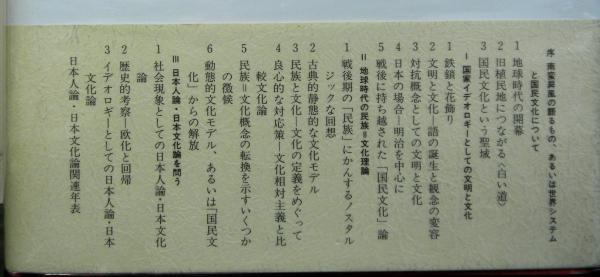 序 南蛮屏風の語るもの、あるいは世界システム
と国民文化について
1 地球時代の開幕
2 旧植民地につながる〈白い道〉
3 国民文化という聖域
I 国家イデオロギーとしての文明と文化
1 鉄鎖と花飾り
2 文明と文化―語の誕生と観念の変容
3 対抗概念としての文明と文化
4 日本の場合―明治を中心に
5 戦後に持ち越された「国民文化」論
II 地球時代の民族=文化理論
1 戦後期の「民族」にかんするノスタル
ジックな回想
2 古典的静態的な文化モデル
3 民族と文化―文化の定義をめぐって
4 良心的な対応策―文化相対主義と比
較文化論
5 民族=文化概念の転換を示すいくつか
の徴候
6 動態的文化モデル、あるいは「国民文
化」からの解放
III 日本人論・日本文化論を問う
1 社会現象としての日本人論・日本文化
論
2 歴史的考察―欧化と回帰
3 イデオロギーとしての日本人論・日本
文化論
日本人論・日本文化論関連年表